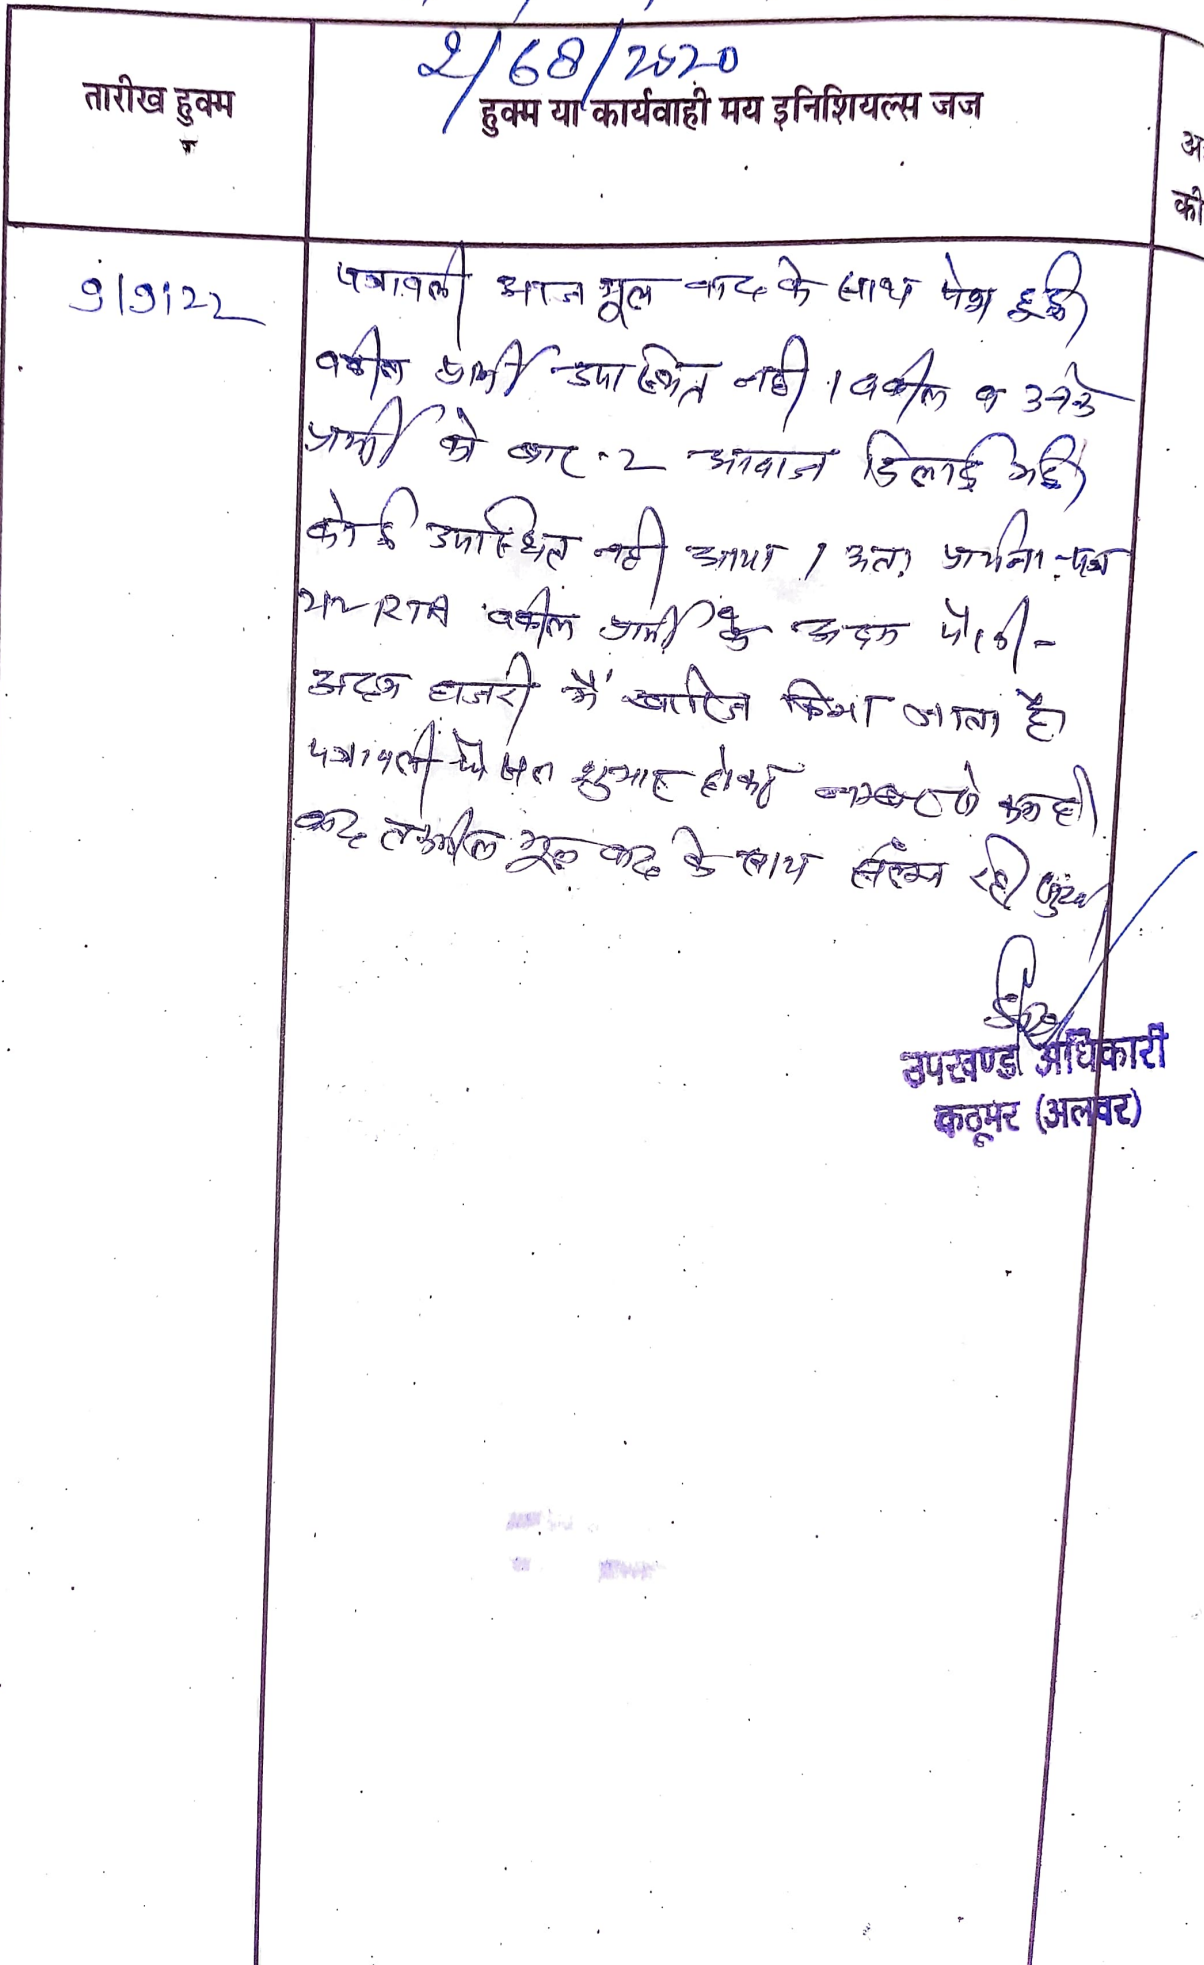 2/68/2020
तारीख हुक्म
हुक्म या कार्यवाही मय इनिशियल्स जज
अ
की
9/9/22
पत्रावली आज मूल वाद के साथ पेश हुई
वकील प्रार्थी उपस्थित नही । वकील व उनके
प्रार्थी को बार-2 आवाज दिलाई गई
कोई उपस्थित नही आया । अतः प्रार्थना-पत्र
212 RTA वकील प्रार्थी के अदम पैरवी-
अदम हाजरी में खारिज किया जाता है।
पत्रावली फैसल शुमार होकर नम्बर से कम हो
बाद तकमील मूल वाद के साथ संलग्न रहे
उपखण्ड अधिकारी
कठूमर (अलवर)